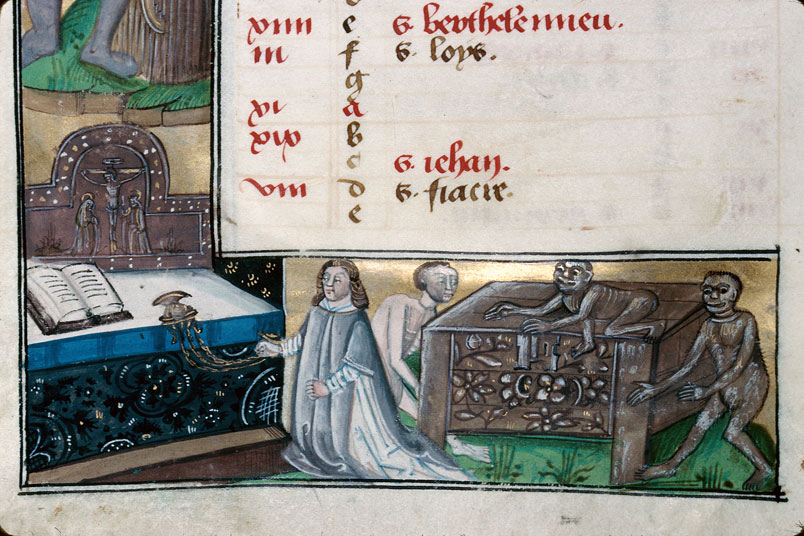 xiiii e s. berthelemieu.
iii f s. loys.
g
xi a
xix b
c s. iehan.
viii d s. fiacre.
e